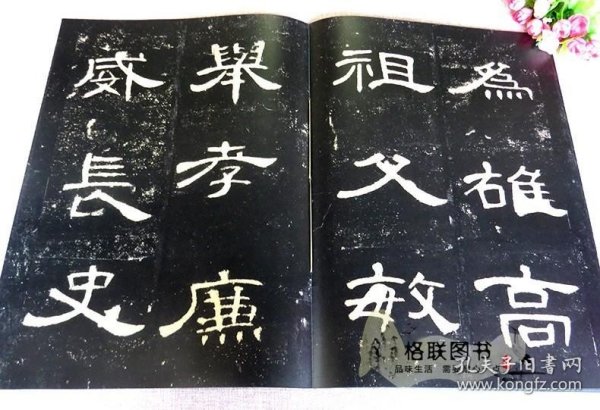 為雄高
祖父敏
舉孝廉
威長史
格联图书
品味生活
孔夫子旧书网
www.kongfz.com